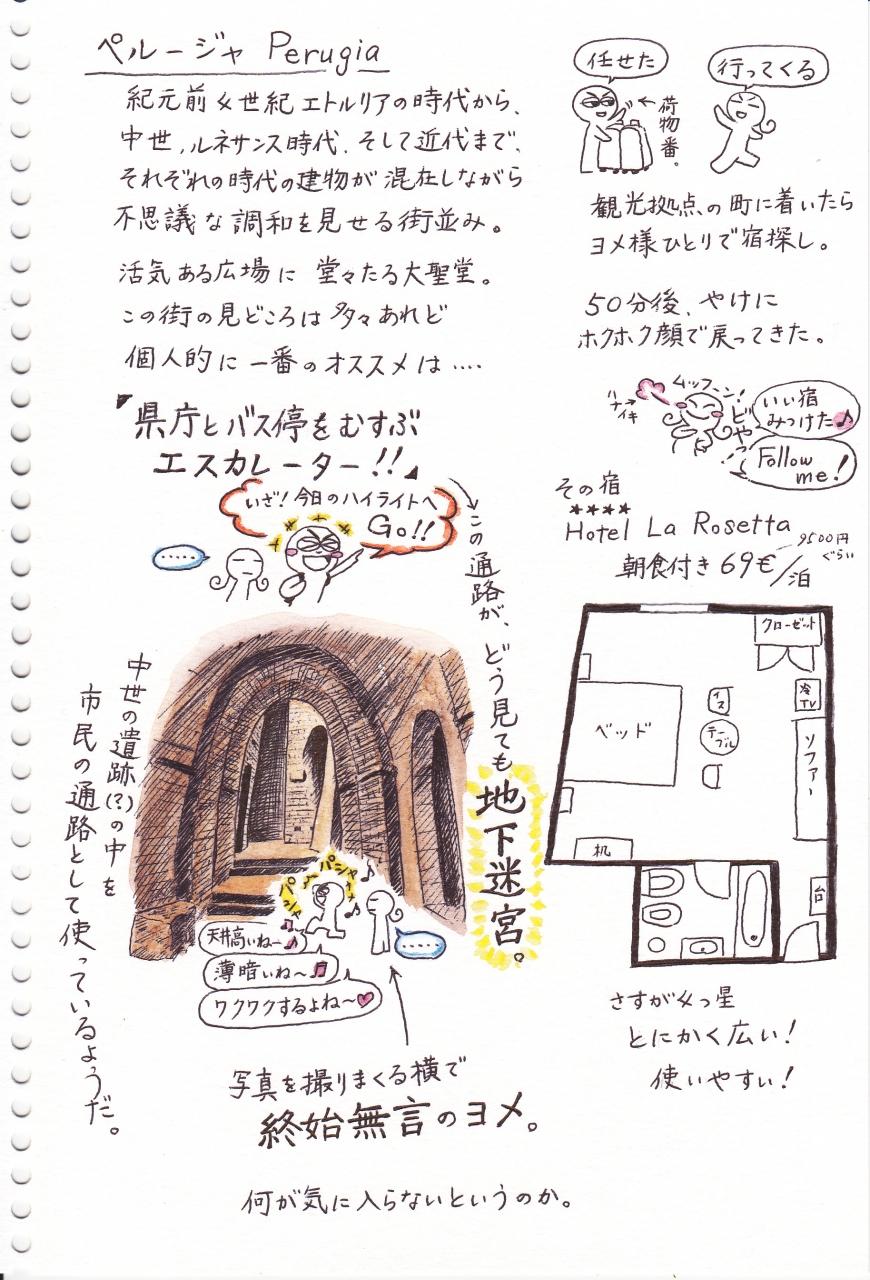 ペルージャ Perugia
紀元前4世紀エトルリアの時代から、
中世、ルネサンス時代、そして近代まで、
それぞれの時代の建物が混在しながら
不思議な調和を見せる街並み。
活気ある広場に 堂々たる大聖堂。
この街の見どころは多々あれど
個人的に一番のオススメは‥‥
『県庁とバス停をむすぶ
エスカレーター!!』
いざ!今日のハイライトへ
Go!!
……
この通路が、どう見ても
地下迷宮。
中世の遺跡(?)の中を
市民の通路として使っているようだ。
パシャパシャ
天井高いね~♪
薄暗いね~♫
ワクワクするよね~♥
……
写真を撮りまくる横で
終始無言のヨメ。
何が気に入らないというのか。
任せた
行ってくる
←荷物番。
観光拠点の町に着いたら
ヨメ様ひとりで宿探し。
50分後、やけに
ホクホク顔で戻ってきた。
ムッフーン!
ハナイキ→
ビャっ!
いい宿
みつけた♪
Follow
me!
その宿
★★★★
Hotel La Rosetta
朝食付き 69€/泊
9500円
ぐらい
クローゼット
冷
TV
イス
テーブル
ベッド
ソファー
机
台
さすが4つ星
とにかく広い!
使いやすい!